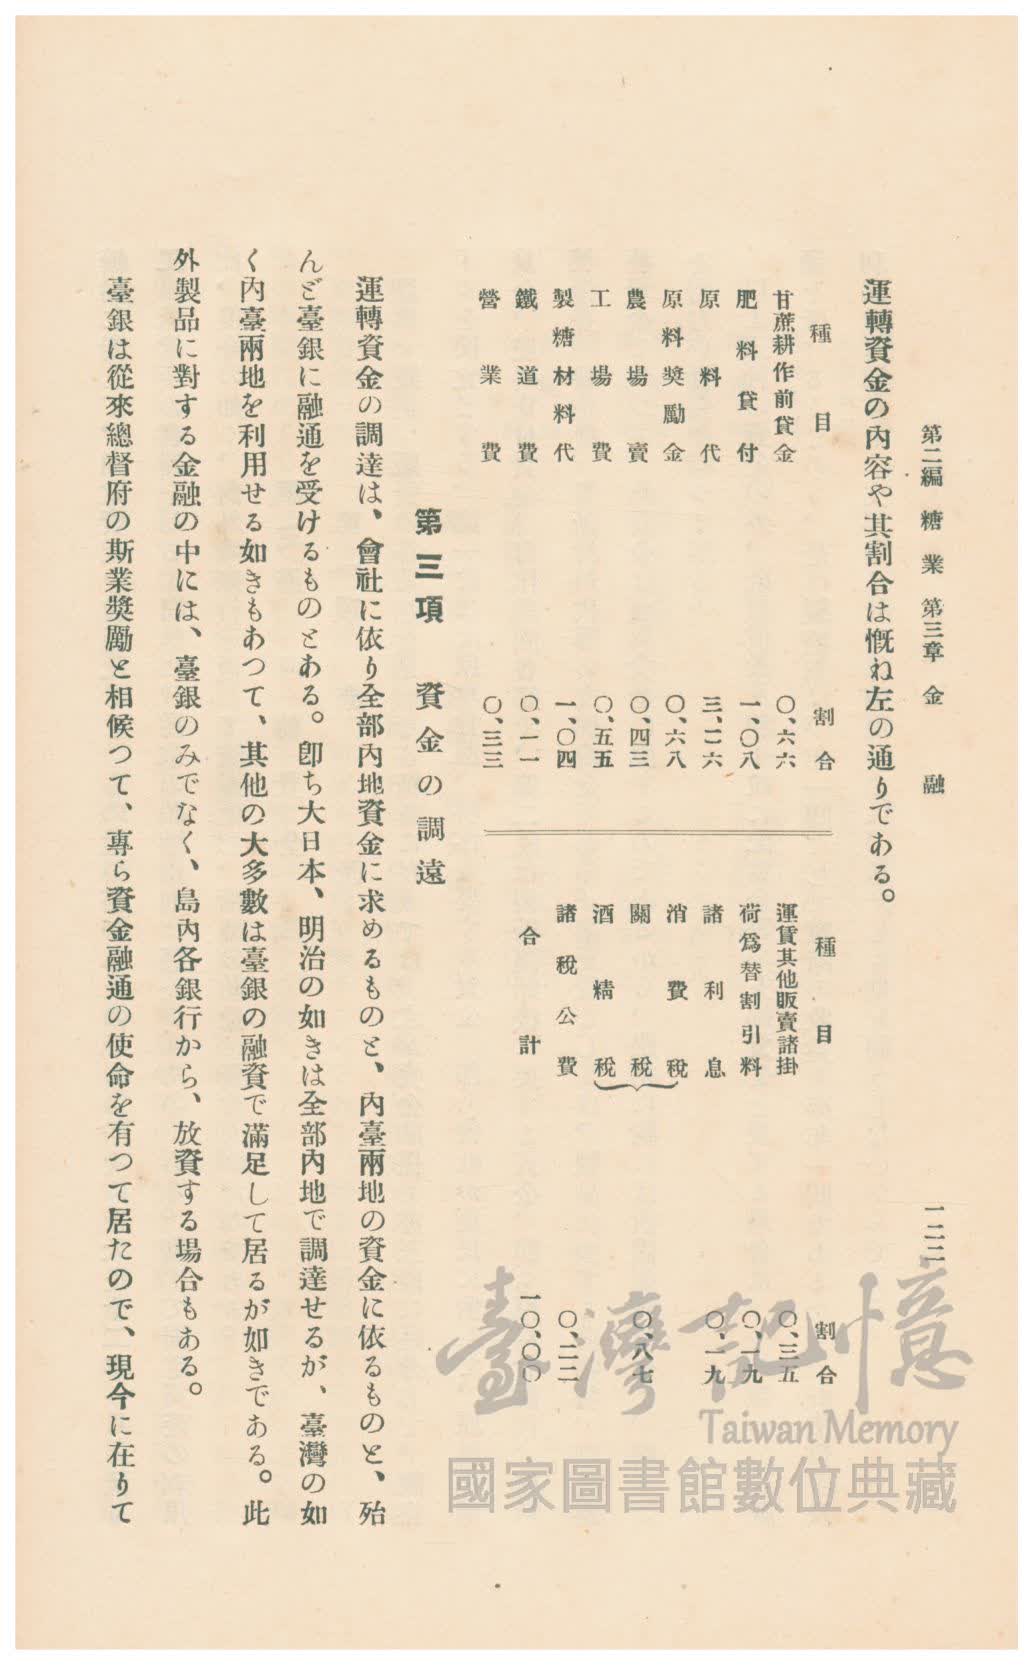 第二編　糖業　第三章　金融
一二二
運轉資金の內容や其割合は慨ね左の通りである。
種目　割合
甘蔗耕作前貸金　〇、六六
肥料貸付　一、〇八
原料代　三、二六
原料獎勵金　〇、六八
農場賣　〇、四三
工場費　〇、五五
製糖材料代　一、〇四
鐵道費　〇、一一
營業費　〇、三三
種目　割合
運賃其他販賣諸掛　〇、三五
荷爲替割引料　〇、一九
諸利息　〇、一九
消費稅
關稅　〇、八七
酒精稅
諸稅公費　〇、二二
合計　一〇、〇〇
第三項　資金の調遠
運轉資金の調達は、會社に依り全部內地資金に求めるものと、內臺兩地の資金に依るものと、殆
んど臺銀に融通を受けるものとある。卽ち大日本、明治の如きは全部內地で調達せるが、臺灣の如
く內臺兩地を利用せる如きもあつて、其他の大多數は臺銀の融資で滿足して居るが如きである。此
外製品に對する金融の中には、臺銀のみでなく、島內各銀行から、放資する場合もある。
臺銀は從來總督府の斯業獎勵と相候つて、專ら資金融通の使命を有つて居たので、現今に在りて
臺灣記憶
Taiwan Memory
國家圖書館數位典藏